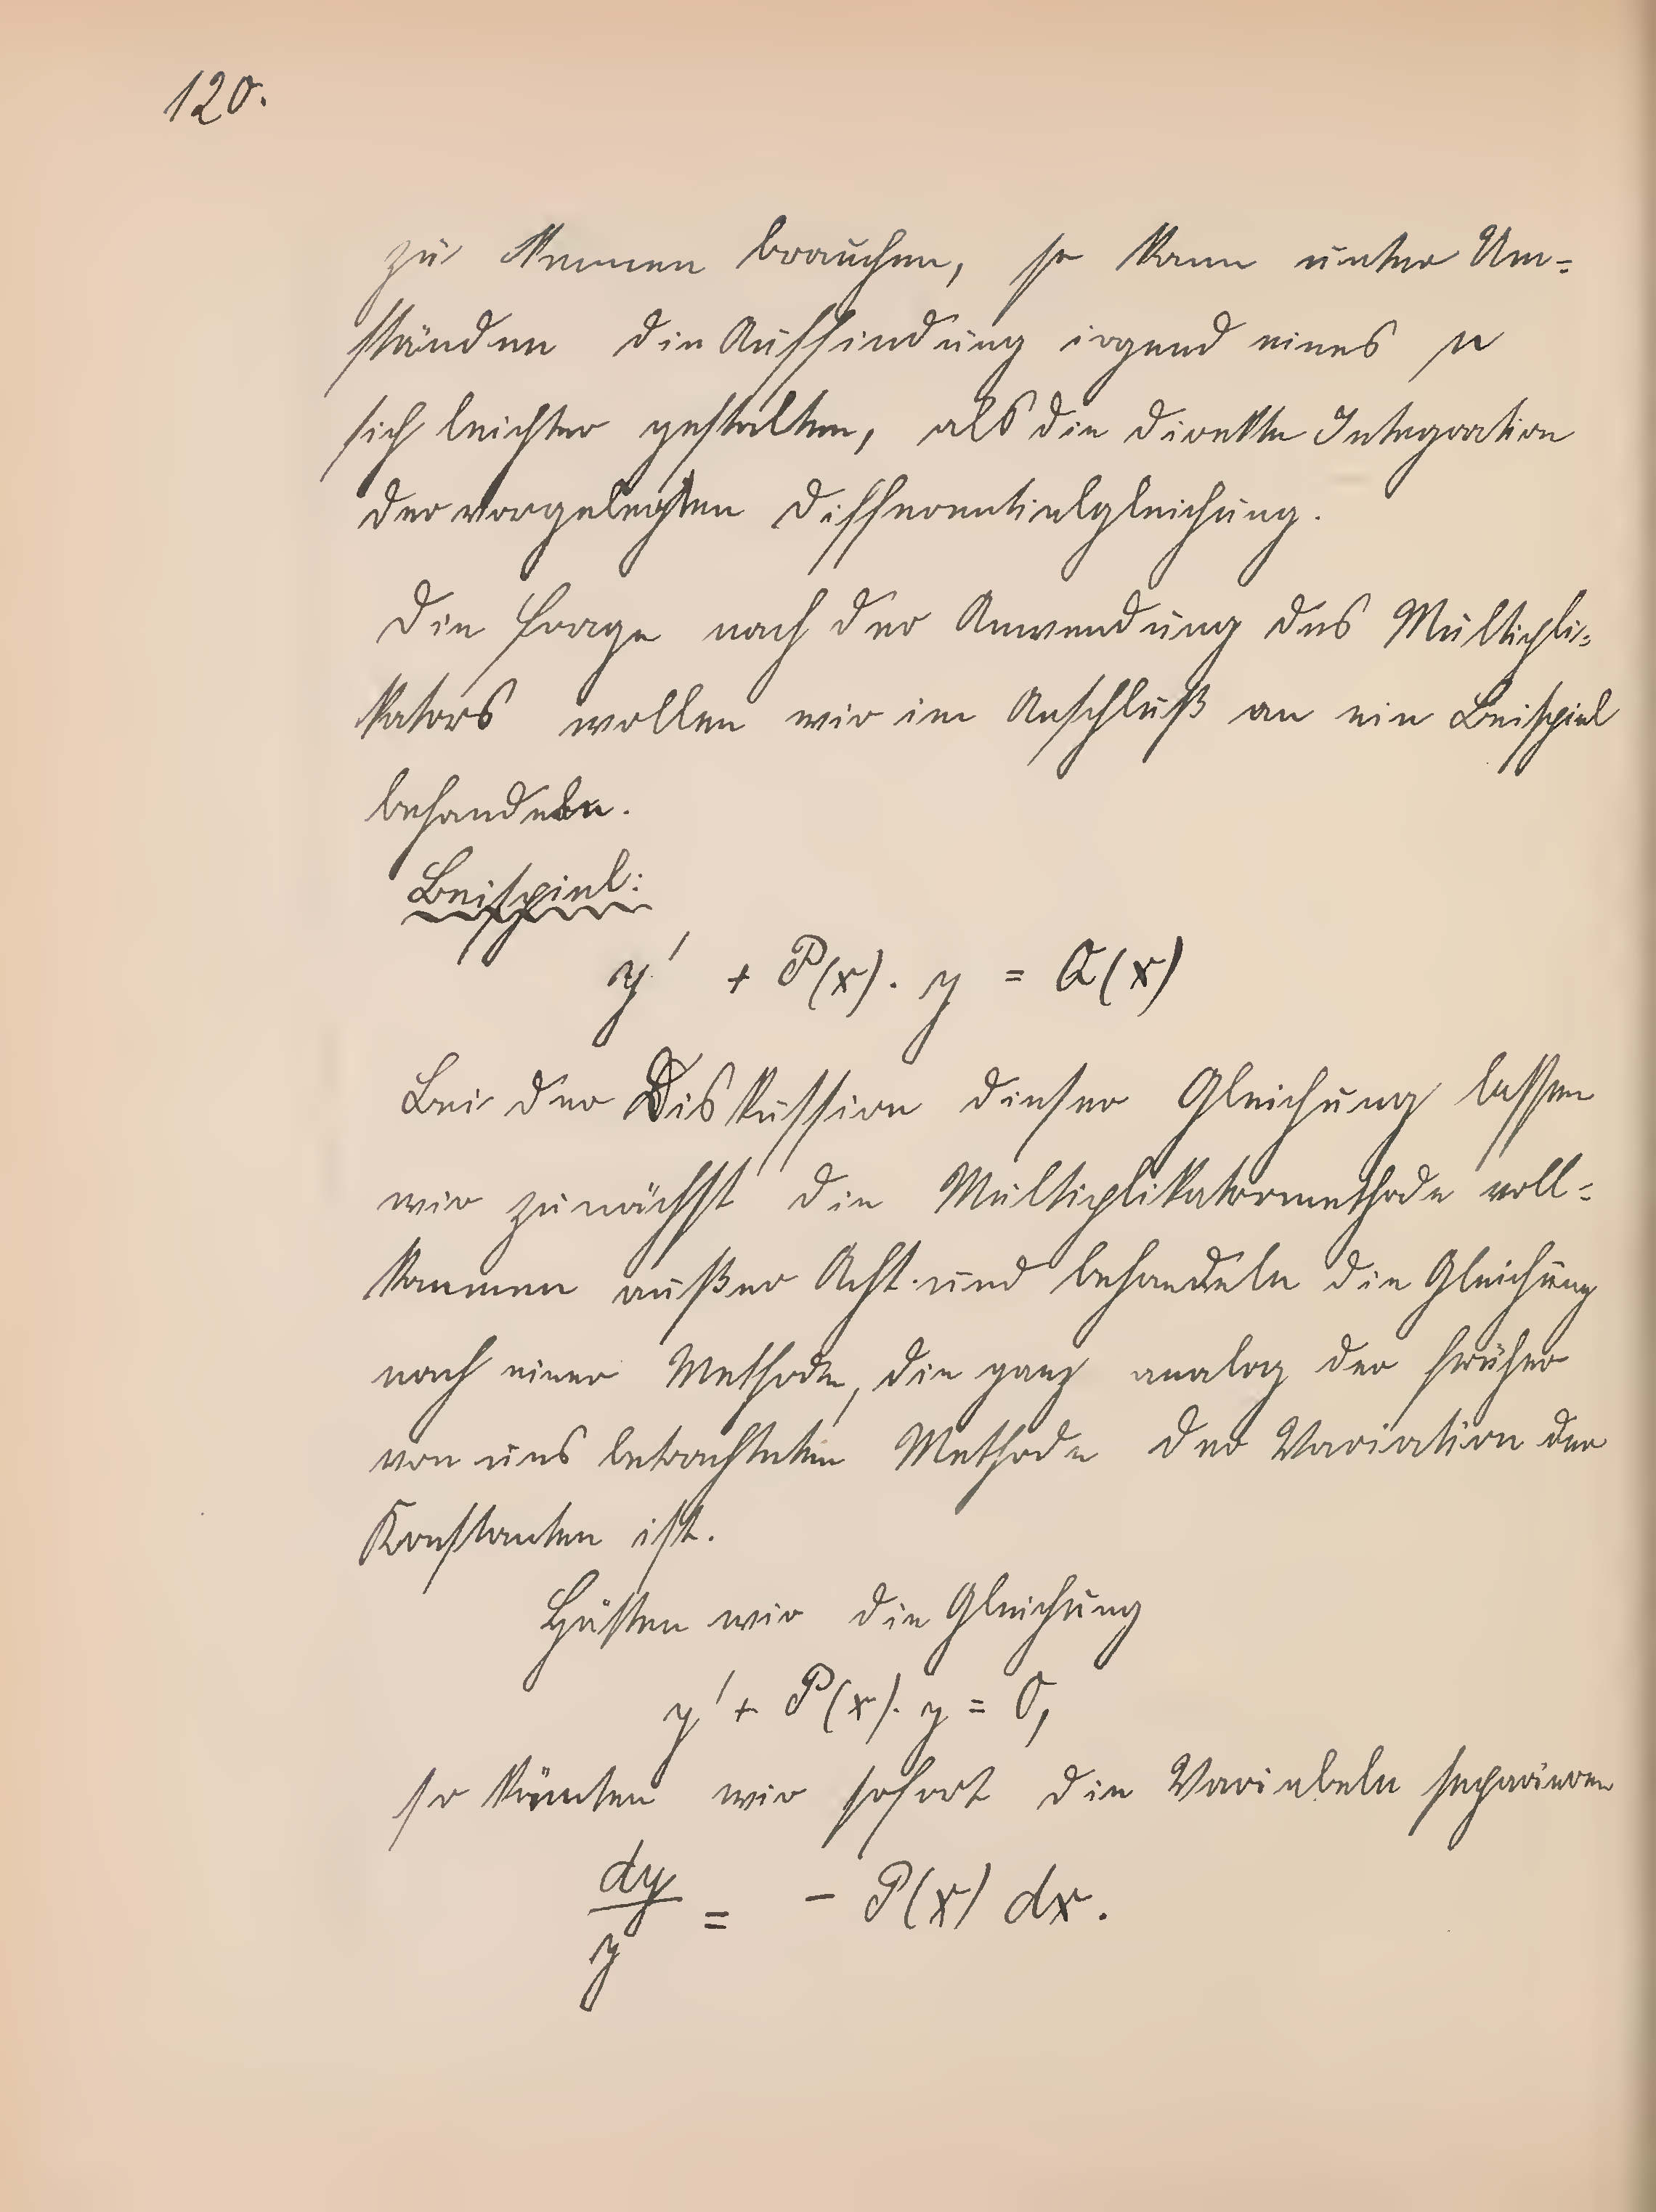 120.
zu kennen brauchen, so kann unter Um=
ständen die Auffindung irgend eines μ
sich leichter gestalten, als die direkte Integration
der vorgelegten Differentialgleichung.
Die Frage nach der Anwendung des Multipli=
kators wollen wir im Anschluß an ein Beispiel
behandeln.
Beispiel:
y' + P(x). y = Q(x)
Bei der Diskussion dieser Gleichung lassen
wir zunächst die Multiplikatormethode voll=
kommen außer Acht und behandeln die Gleichung
nach einer Methode, die ganz analog der früher
von uns betrachteten Methode der Variation der
Konstanten ist.
Hätten wir die Gleichung
y' + P(x). y = 0,
so könnten wir sofort die Variabeln separieren
dy/y = - P(x) dx.